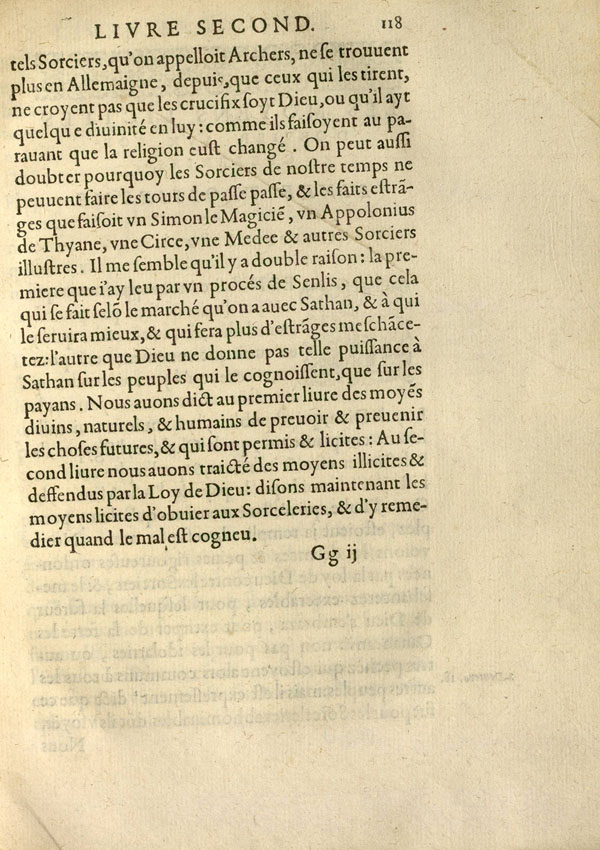 LIVRE SECOND. 118
tels Sorciers, qu'on appelloit Archers, ne se trouuent
plus en Allemaigne, depuis, que ceux qui les tirent,
ne croyent pas que les crucifix soyt Dieu, ou qu'il ayt
quelqu e diuinité en luy : comme ils faisoyent au pa-
rauant que la religion eust changé. On peut aussi
doubter pourquoy les Sorciers de nostre temps ne
peuuent faire les tours de passe passe, & les faits estrã-
ges que faisoit vn Simon le Magiciẽ, vn Appolonius
de Thyane, vne Circe, vne Medee & autres Sorciers
illustres. Il me semble qu'il y a double raison : la pre-
miere que i'ay leu par vn procés de Senlis, que cela
qui se fait selõ le marché qu'on a auec Sathan, & à qui
le seruira mieux, & qui fera plus d'estrãges meschãce-
tez: l'autre que Dieu ne donne pas telle puissance à
Sathan sur les peuples qui le cognoissent, que sur les
payans. Nous auons dict au premier liure des moyẽs
diuins, naturels, & humains de preuoir & preuenir
les choses futures, & qui sont permis & licites : Au se-
cond liure nous auons traicté des moyens illicites &
deffendus par la Loy de Dieu: disons maintenant les
moyens licites d'obuier aux Sorceleries, & d'y reme-
dier quand le mal est cogneu.
Gg ij